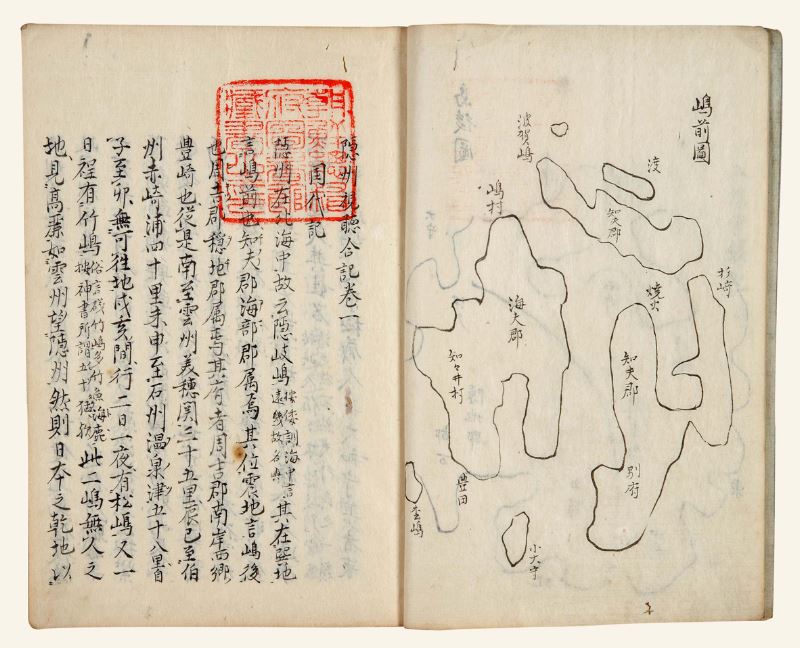 嶋前圖
渡
波賀嶋
知夫郡
嶋村
杉崎
焼火
海夫郡
知夫郡
知々井村
別府
豊田
小大守
隠州視聴合記巻一
国代記
隠州在北海中故云隠岐嶋按倭訓海中言遠幾故名歟其在巽地
言嶋前也知夫郡海部郡属焉其位震地言嶋後
也周吉郡穏地郡属焉其府者周吉郡南岸西郷
豊崎也従是南至雲州美穂関三十五里辰巳至伯
州赤崎浦四十里未申至石州温泉津五十八里自
子至卯無可往地戌亥間行二日一夜有松嶋又一
日程有竹嶋俗言磯竹嶋多竹魚海鹿按神書所謂五十猛歟此二嶋無人之
地見高麗如雲州望隠州然則日本之乾地以